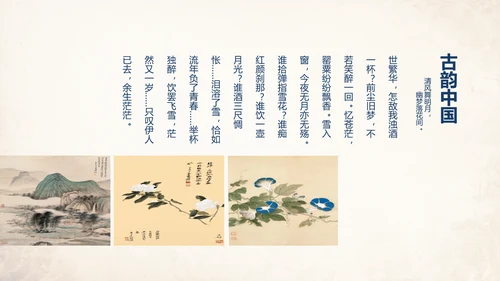 古韵中国
清风舞明月，
幽梦落花间。
世繁华，怎敌我浊酒
一杯？前尘旧梦，不
若笑醉一回。忆苍茫，
罂粟纷飘香。雪入
窗，今夜无月亦无殇。
谁拾弹指雪花？谁痴
红颜刹那？谁饮一壶
月光？谁酒三尺惆
怅……泪溶了雪，恰如
流年负了青春……举杯
独醉，饮罢飞雪，茫
然又一岁……只叹伊人
已去，余生茫茫。